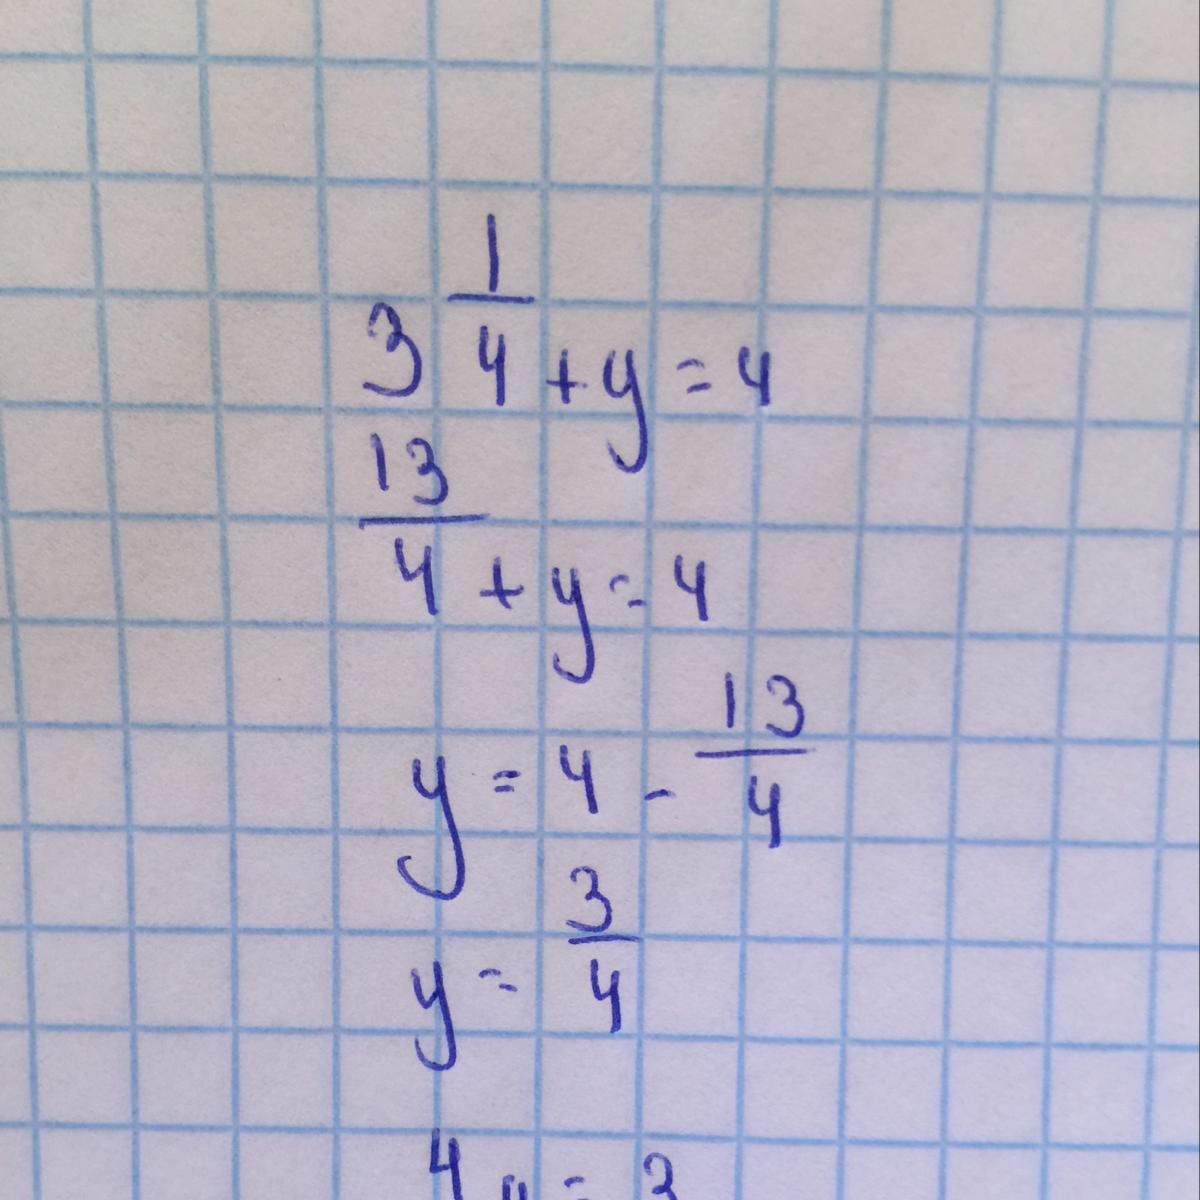 3 1/4 + y = 4
13/4 + y = 4
y = 4 - 13/4
y = 3/4